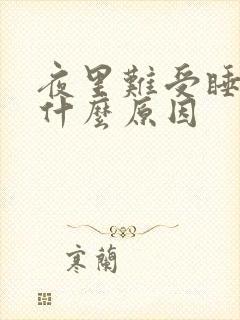 夜里難受睡
什麼原因
寒蘭